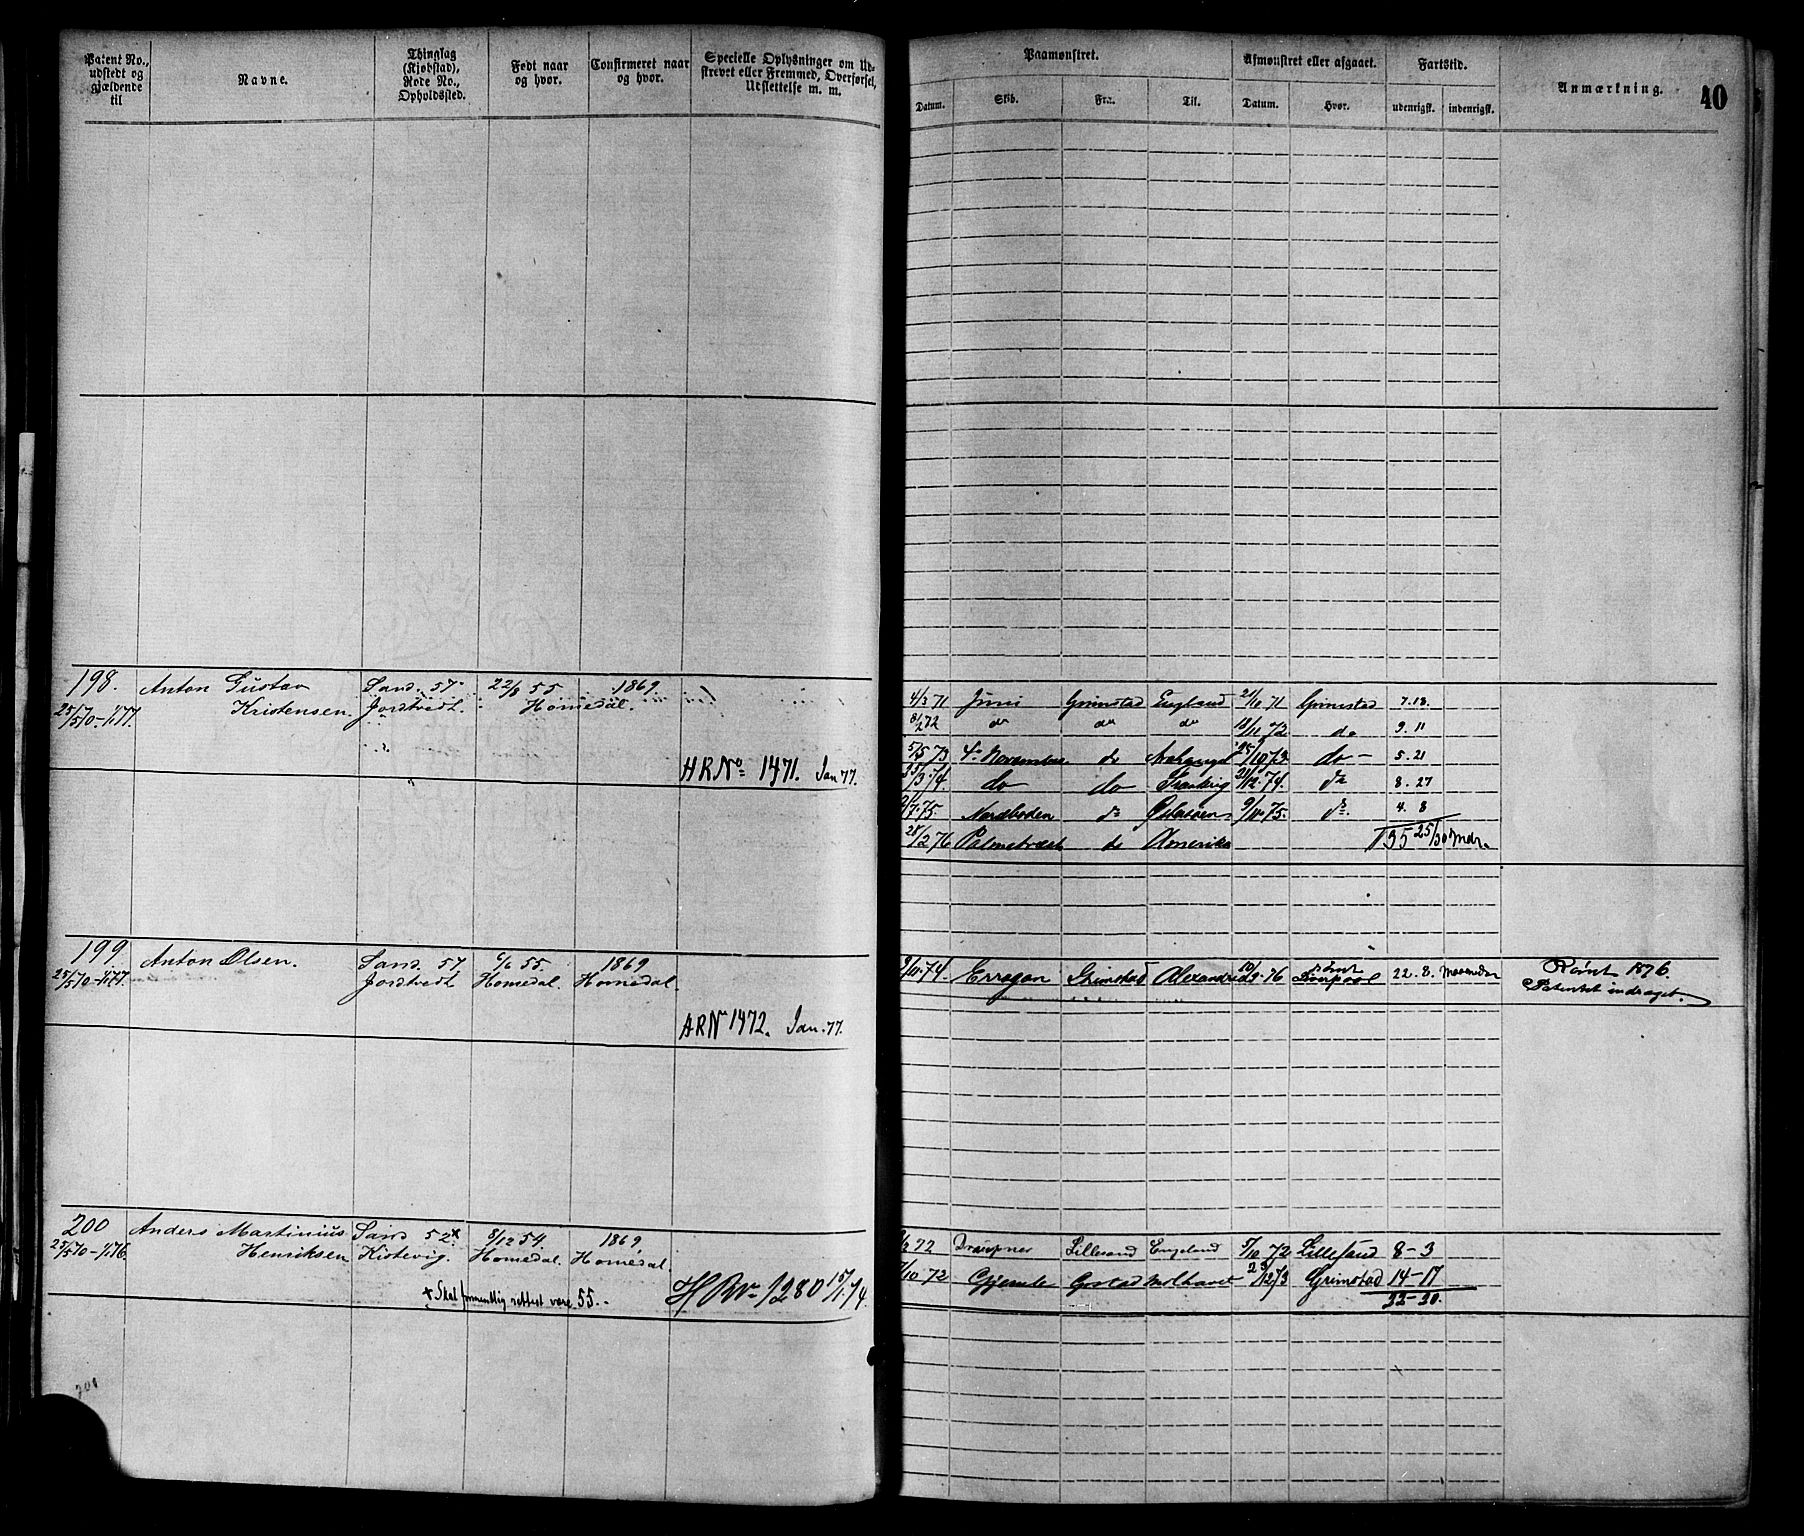 Patent No., udstedt og gjældende til
Navne.
Thinglag (Kjøbstad), Rode No., Opholdssted.
Født naar og hvor.
Confirmeret naar og hvor.
Specielle Oplysninger om Udskrevet eller Fremmed, Overførsel, Udslettelse m. m.
Paamønstret.
Afmønstret eller afgaaet.
Fartstid.
Anmærkning.
40
Datum. Skib. Fra. Til. Datum. Hvor. udenrigsk. indenrigsk.
198. Anton Gustav Sand. 57 22/8 55 1869
25/5 70-1/1 77. Kristensen Jortvedt Homedal.
HRNo 1471. Jan 77.
4/3 71 Juni Grimstad England 21/10 71 Grimestad 7.18.
8/2 72 do do do 18/11 72 do 9.11
5/5 73 4de November do Archangel 25/10 73 do - 5.21
do do Frankrig 21/12 74. do 8.27
2/7 75 Nordboden do 9/11 75. do. 4.8
28/2 76 do Amerika 35 25/30 Mdr.
199 Anton Olsen. Sand 57 6/6 55. 1869
25/5 70-1/1 77. Jortvedt Homedal Homedal.
ARNo 1472. Jan. 77.
9/10 74. Erragon Grimstad Alexandria 10/9 76 rømt Liverpool 22.8. Maaneder Rømt 1876.
Patentet inddraget.
200 Anders Martinius Sand 52x 8/12 54 1869
25/5 70-1/1 76. Henriksen Kistevig. Homedal. Homedal.
+ Skal formentlig rettest være 55.-
HRNo 1280 15/1 74.
/2 72 Draupner Lillesand England 5/10 72 Lillesand 8-3
/10 72 Gjemle 23/12 73 Grimstad 14-17
22-20.
201